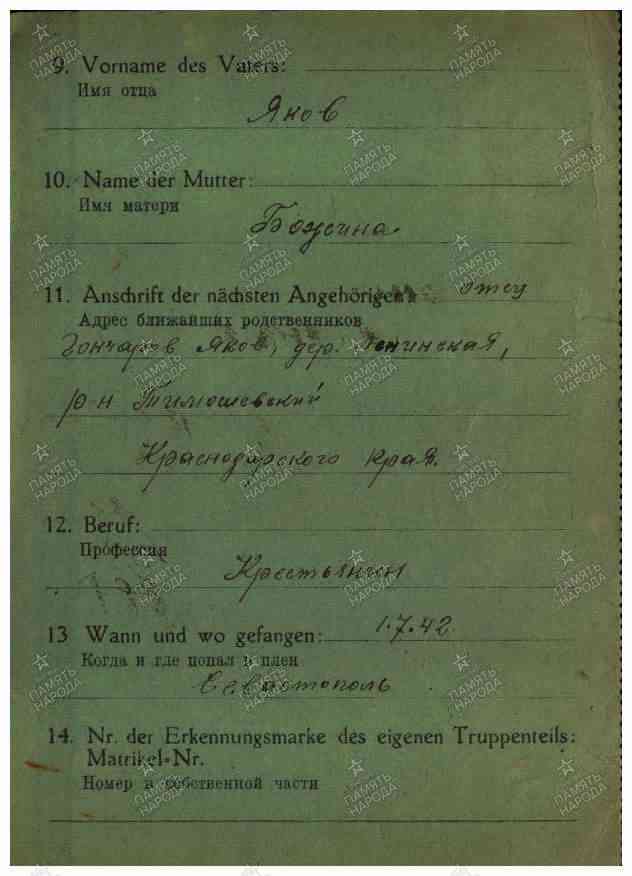 9. Vorname des Vaters:
Имя отца
Яков
10. Name der Mutter:
Имя матери
Божчина
11. Anschrift der nächsten Angehörigen: отец
Адрес ближайших родственников
Гончаров Яков, дер. Ленинская,
р-н Тимошевский
Краснодарского края.
12. Beruf:
Профессия
Крестьянин
13 Wann und wo gefangen: 1.7.42
Когда и где попал в плен
Севастополь
14. Nr. der Erkennungsmarke des eigenen Truppenteils:
Matrikel-Nr.
Номер в собственной части
ПАМЯТЬ НАРОДА